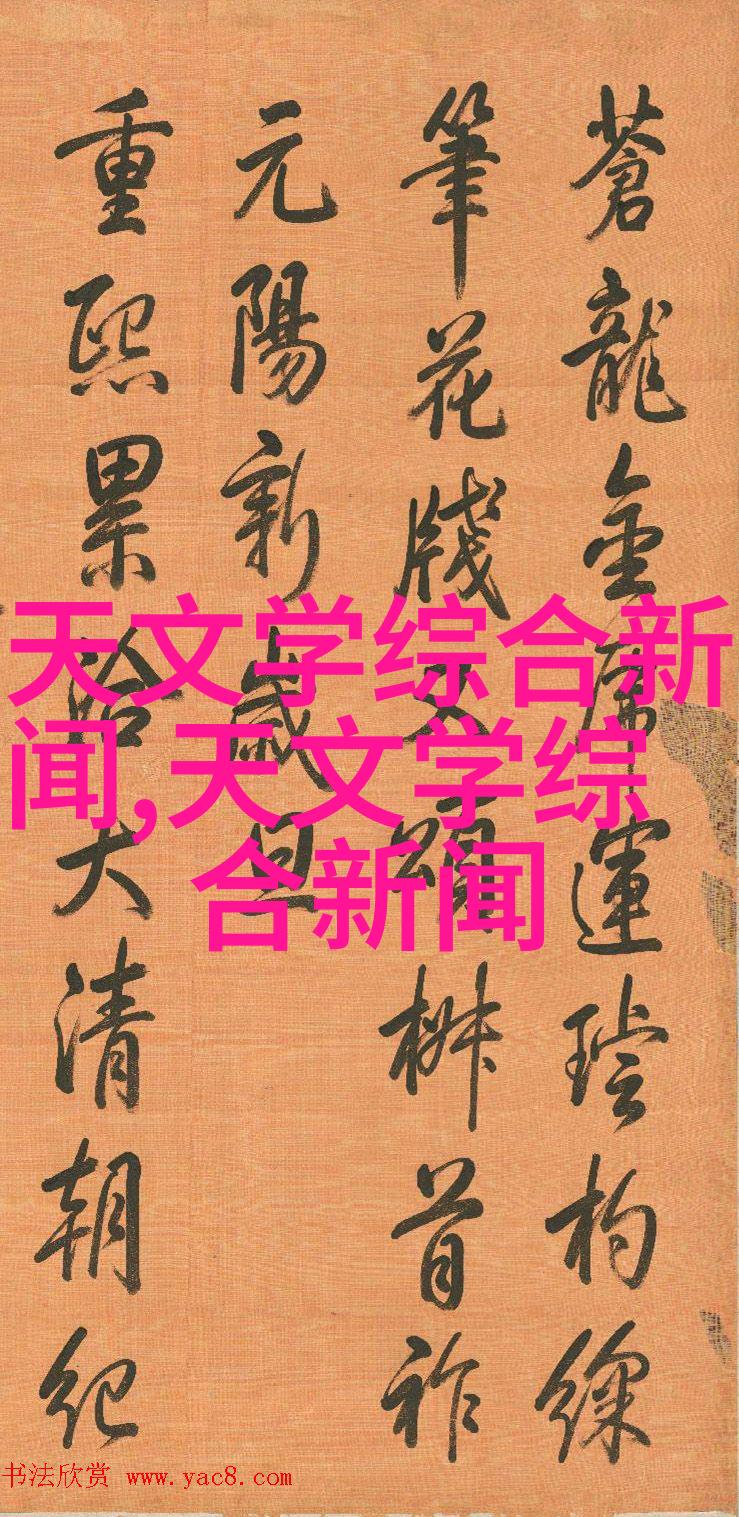 蒼龍金運杓
筆花牋頌椒首祚
元陽新歲旦
重熙累洽大清朝紀
天文学综合新
闻,天文学综
合新闻
书法欣赏 www.yac8.com